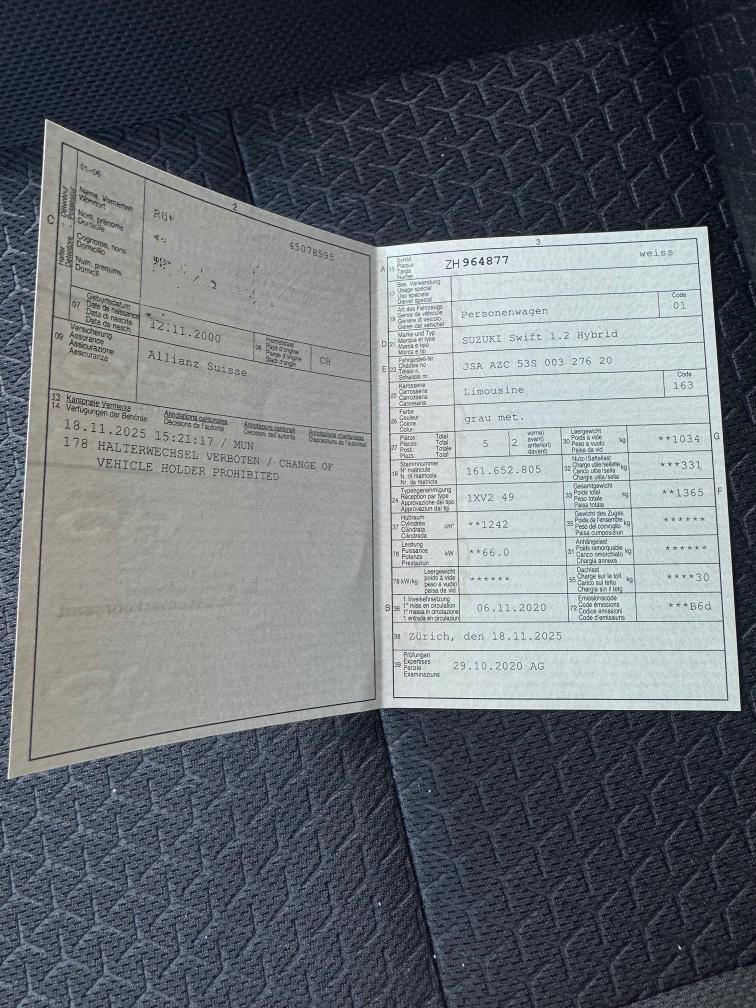 2
01-06
C
Name, Vornamen
Wohnort
Nom, prénoms
Domicile
Cognome, nomi
Domicilio
Num, prenums
Domicil
45078595
07
Geburtsdatum
Date de naissance
Data di nascita
Data da nasch.
12.11.2000
Heimatstaat
Pays d'origine
Paese d'origine
Stadi d'origin
CH
09
Versicherung
Assurance
Assicurazione
Assicuranza
Allianz Suisse
13 Kantonale Vermerke
14 Verfügungen der Behörde
Annotations cantonales
Décisions de l'autorité
Annotazioni cantonali
Decisioni dell'autorità
Annotaziuns chantunalas
Disposiziuns da l'autoritad
18.11.2025 15:21:17 / MUN
178 HALTERWECHSEL VERBOTEN / CHANGE OF
VEHICLE HOLDER PROHIBITED
3
A 15
Schild
Plaque
Targa
Numer
ZH 964877
weiss
17
Bes. Verwendung
Usage spécial
Uso speciale
Diever spezial
19
Art des Fahrzeugs
Genre de véhicule
Genere di veicolo
Gener dal vehichel
Personenwagen
Code
01
D 21
Marke und Typ
Marque et type
Marca e tipo
Marca e tip
SUZUKI Swift 1.2 Hybrid
E 23
Fahrgestell-Nr
Châssis no
Telaio n.
Schassis nr.
JSA AZC 53S 003 276 20
25
Karosserie
Carrosserie
Carrozzeria
Carossaria
Limousine
Code
163
26
Farbe
Couleur
Colore
Colur
grau met.
27
Plätze: Total
Places: Total
Posti: Totale
Plazs: Total
5
2
vorne)
avant)
anteriori)
davant)
30
Leergewicht
Poids à vide
Peso a vuoto
Paisa da vid
kg
**1034
G
18
Stammnummer
N° matricule
N. di matricola
Nr. da matricla
161.652.805
32
Nutz-/Sattellast
Charge utile/sellette
Carico utile/sella
Chargia utila/sella
kg
***331
24
Typengenehmigung
Réception par type
Approvazione del tipo
Approvaziun dal tip
1XV2 49
33
Gesamtgewicht
Poids total
Peso totale
Paisa totala
kg
**1365
F
37
Hubraum
Cylindrée
Cilindrata
Cilindrada
cm³
**1242
35
Gewicht des Zuges
Poids de l'ensemble
Peso del convoglio
Paisa cumposiziun
kg
******
76
Leistung
Puissance
Potenza
Prestaziun
kW
**66.0
31
Anhängelast
Poids remorquable
Carico rimorchiato
Chargia annexa
kg
******
78 kW/kg
Leergewicht
poids à vide
peso a vuoto
paisa da vid
******
55
Dachlast
Charge sur le toit
Carico sul tetto
Chargia sin il tetg
kg
****30
B 36
1. Inverkehrsetzung
1re mise en circulation
1a messa in circolazione
1. entrada en circulaziun
06.11.2020
72
Emissionscode
Code émissions
Codice emissioni
Code d'emissiuns
***B6d
38
Zürich, den 18.11.2025
39
Prüfungen
Expertises
Perizie
Examinaziuns
29.10.2020 AG